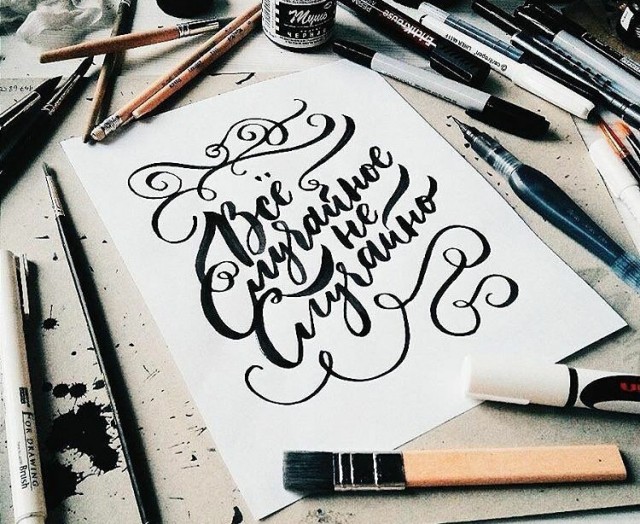 Тушь
ЧЕРНАЯ
ErichKrause
centropen
Всё
Случайное
не
Случайно
FOR DRAWING
Brush